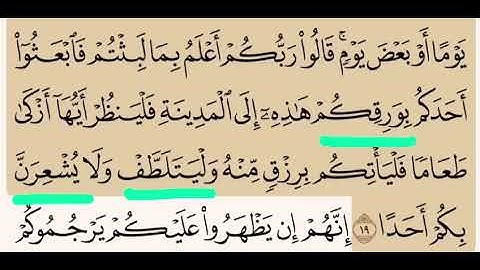 يَوْمًا أَوْ بَعْضَ يَوْمٍۚ قَالُوا۟ رَبُّكُمْ أَعْلَمُ بِمَا لَبِثْتُمْ فَٱبْعَثُوٓا۟
أَحَدَكُم بِوَرِقِكُمْ هَٰذِهِۦٓ إِلَى ٱلْمَدِينَةِ فَلْيَنظُرْ أَيُّهَآ أَزْكَىٰ
طَعَامًا فَلْيَأْتِكُم بِرِزْقٍ مِّنْهُ وَلْيَتَلَطَّفْ وَلَا يُشْعِرَنَّ
بِكُمْ أَحَدًا ١٩ إِنَّهُمْ إِن يَظْهَرُوا۟ عَلَيْكُمْ يَرْجُمُوكُمْ